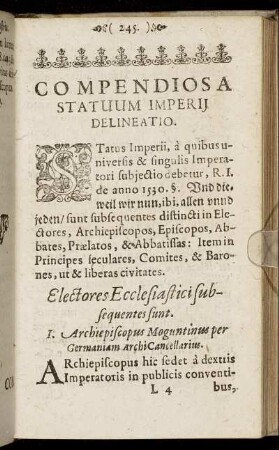 ( 245. )
COMPENDIOSA
STATUUM IMPERIJ
DELINEATIO.
STatus Imperii, à quibus u-
niversis & singulis Impera-
tori subjectio debetur, R. I.
de anno 1550. §. Und die,
weil wir nun, ibi, allen unnd
jeden / sunt subsequentes distincti in Ele-
ctores, Archiepiscopos, Episcopos, Ab-
bates, Prælatos, & Abbatissas: Item in
Principes seculares, Comites, & Baro-
nes, ut & liberas civitates.
Electores Ecclesiastici sub-
sequentes sunt.
I. Archiepiscopus Moguntinus per
Germaniam archiCancellarius.
ARchiepiscopus hic sedet à dextris
Imperatoris in publicis conventi-
L 4 bus,